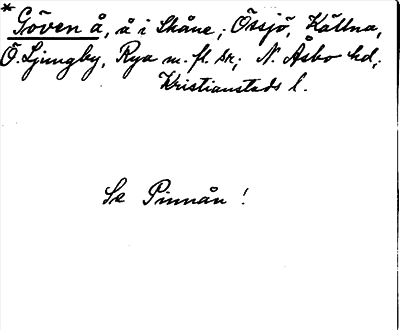 * Göven å, å i Skåne; Össjö, Källna,
Ö. Ljungby, Rya m. fl. snr; N. Åsbo hd,
Kristianstads l.
Se Pinnån!